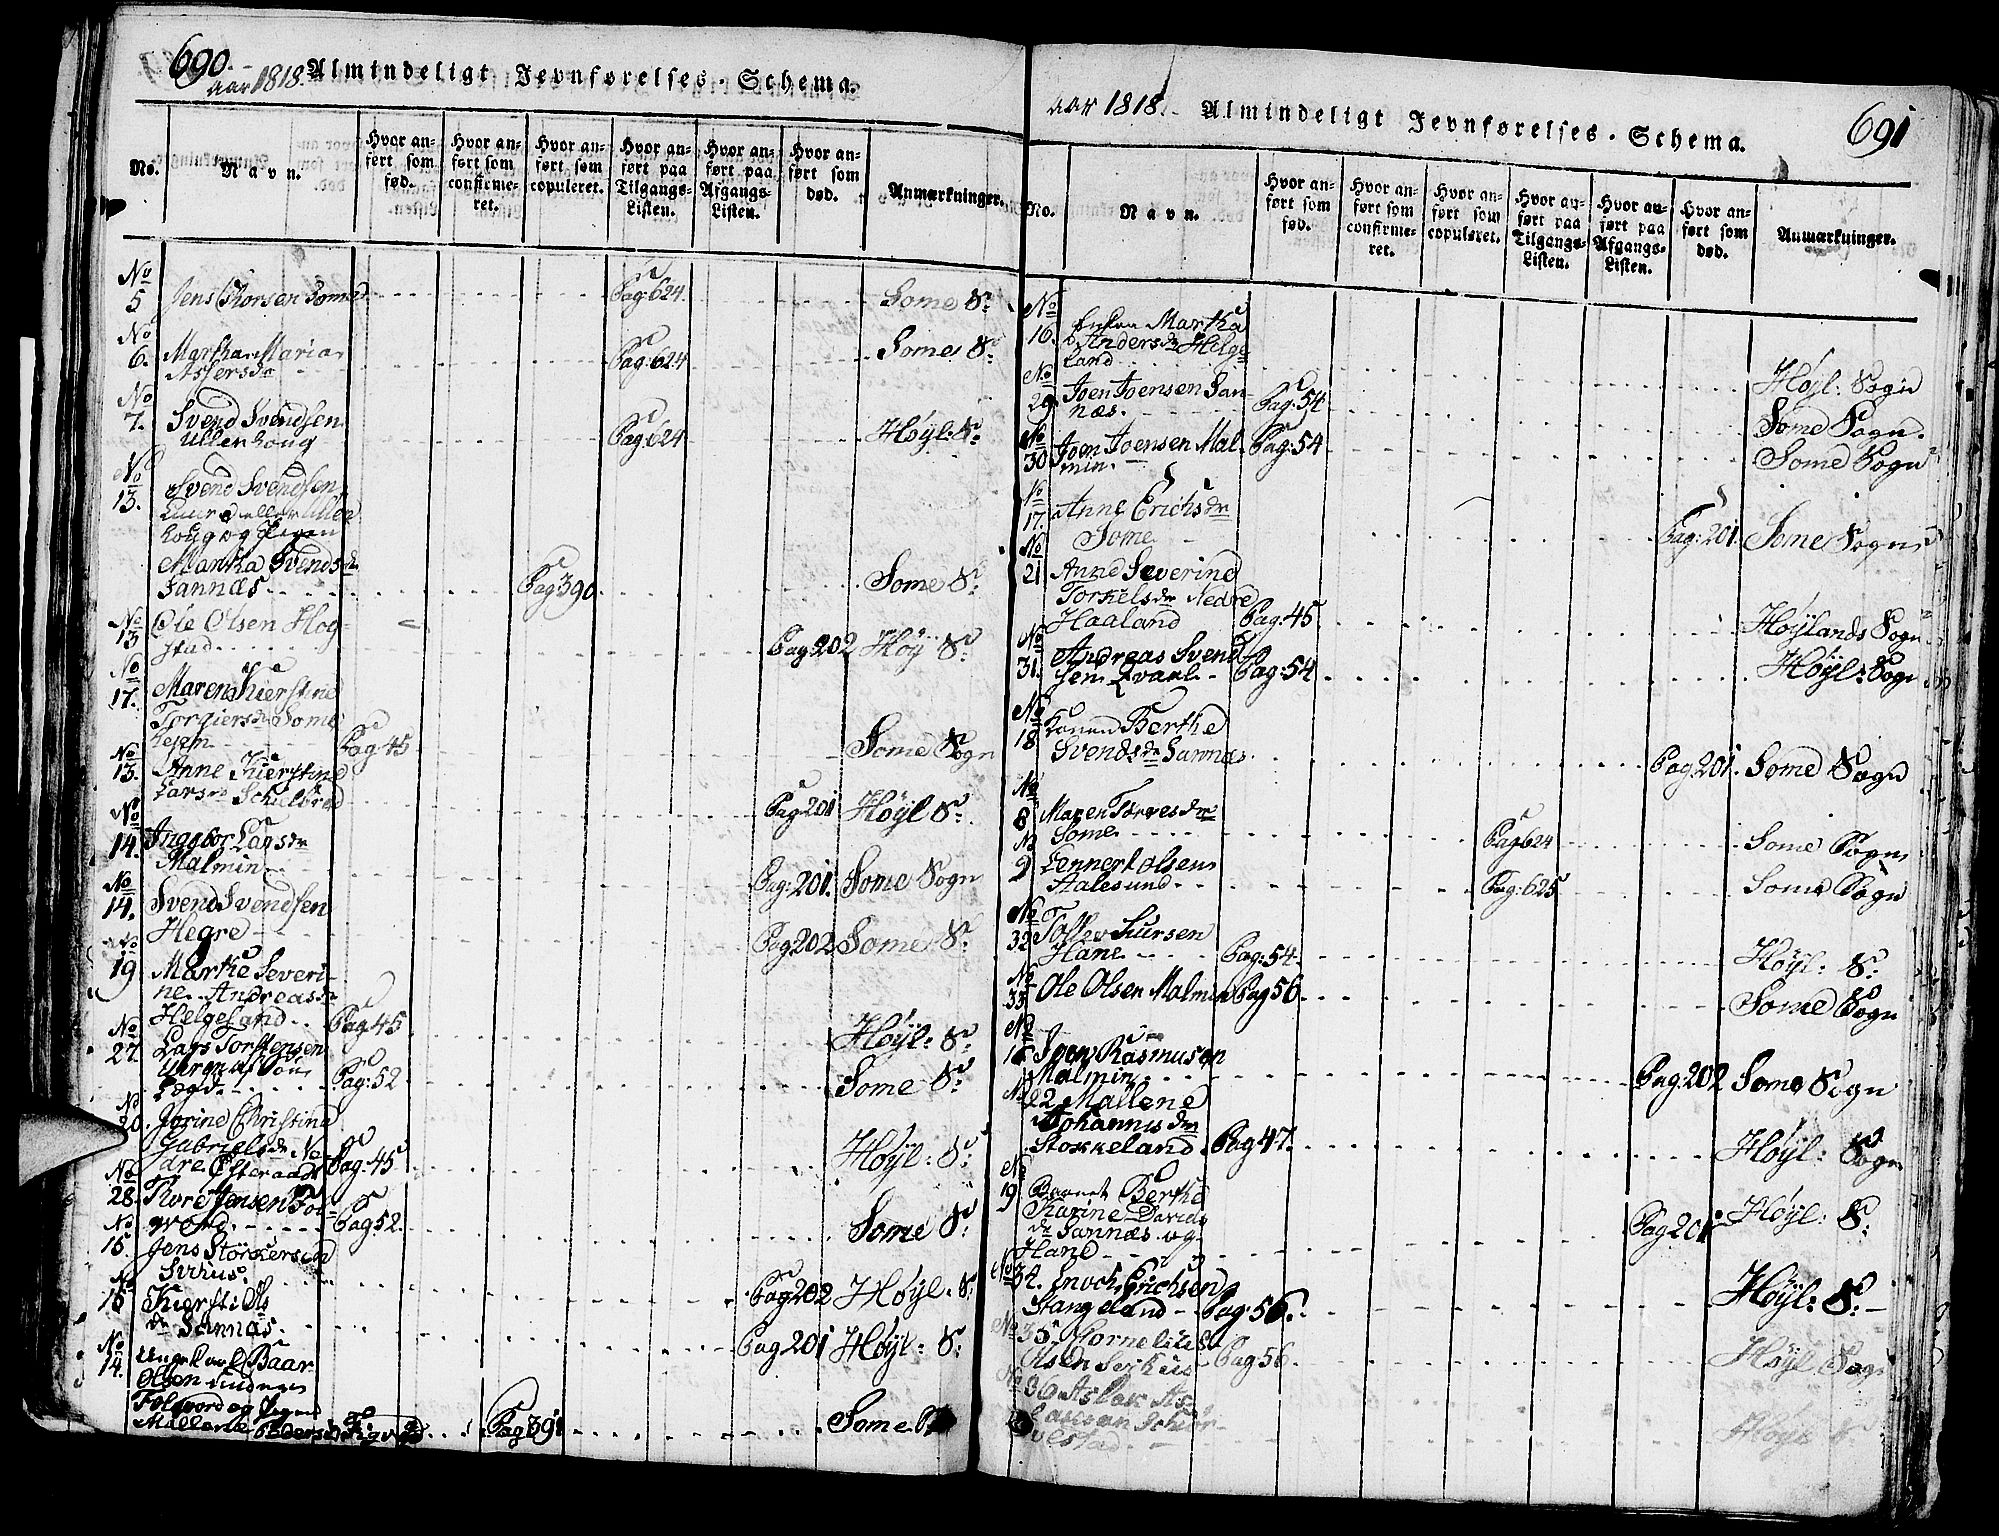 690.
Aar 1818. Almindeligt Jevnførelses-Schema.
No.
Navn.
Hvor anført som fød.
Hvor anført som confirmeret.
Hvor anført som copuleret.
Hvor anført paa Tilgangs-Listen.
Hvor anført paa Afgangs-Listen.
Hvor anført som død.
Anmærkninger.
No 5 Jens Thorsen Some Pag: 624. Some S:
No 6. Martha Maria Pag: 624 Some S:
Assersdr
No 7. Svend Svendsen
Ullenhoug Pag: 624 Høyl: S:
No 13. Svend Svendsen
houg og Pigen
Martha Svendsdr
Sannæs Pag 390 Some S:
No 13 Ole Olsen Hog-
stad Pag: 202 Høy S:
No 17. Maren Kierstine
Torgiersdr Some
Pag: 45 Some Sogn
No 13. Anne Kierstine
Larsdr Schielbred Pag: 201 Høyl S:
No 14. Ingebor Larsdr
Malmin Pag: 201. Some Sogn
No 14. Svend Svendsen
Hegre Pag 202 Some S:
No 19 Marthe Severi-
ne Andreasdr
Helgeland Pag: 45 Høyl: S:
No 27. Lars Torstensen
Pag: 52 Some S:
No 20. Jorine Christine
Gabrielsdr Ne-
dre Pag: 45 Høyl: S:
No 28. Thore Jensen Fol-
word Pag: 52. Some S:
No 15. Jens Størkersen
Svihus. Pag: 202 Høyl: S:
No 15 Kiersti As
dr Sannæs. Pag 201 Høyl: S:
No 14. Ungkarl Baar
Olsen
Folword og Pigen
Mallene Pedersdr Pag 391 Some S
Aar 1818. Almindeligt Jevnførelses-Schema. 691
No.
Navn.
Hvor anført som fød.
Hvor anført som confirmeret.
Hvor anført som copuleret.
Hvor anført paa Tilgangs-Listen.
Hvor anført paa Afgangs-Listen.
Hvor anført som død.
Anmærkninger.
No 16. Enken Martha
Andersdr Helge
land Høyl: Sogn
No 29 Joen Joensen San-
næs. Pag: 54 Some Sogn.
No 30 Joen Joensen Mal-
min. Pag: 54 Some Sogn
No 17. Anne Erichsdr
Some Pag: 201. Some Sogn
No 21 Anne Severine
Torkelsdr Nedre
Haaland Pag: 45 Høylands Sogn
No 31. Andreas Svend-
sen Qvahl Pag: 54 Høyl: Sogn
No 18 Konen Berthe
Svendsdr Sannæs. Pag: 201. Some Sogn
No 8 Maren Torresdr
Some Pag 624 Some Sogn
No 9 Lennert Olsen
Aalesund Pag: 625 Some Sogn
No 32 Tollev Siursen
Hane Pag: 54. Høyl: S:
No 33 Ole Olsen Malmin Pag 56. Some Sogn
No 16 Joen Rasmusen
Malmin Pag: 202 Some Sogn
No 22 Mallene
Johannisdr
Stokkeland Pag: 47. Høyl: Sogn
No 19 Barnet Berthe
Karine Davids
dr Sannæs og
Hane Pag 201 Høyl: S:
No 34. Enoch Erichsen
Stangeland Pag: 56. Høyl: S:
No 35 Kornelius
Olsen Serhus Pag 56. Høyl: Sogn
No 36 Aslak As-
laksen Schiør-
vestad Høyl: S: